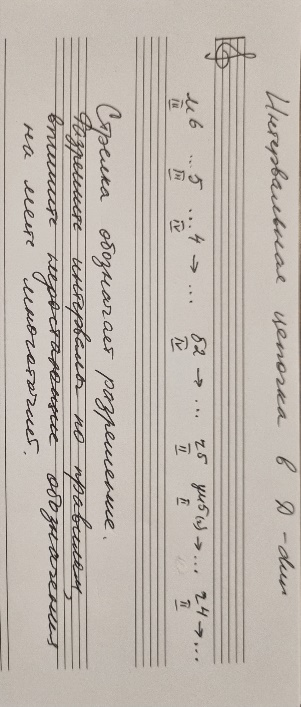 Интервальная цепочка в D-dur
м6 ...5 ...4 → ... б2 → ... ч5 ум5(н) → ... ч4 → ...
III III IV IV II II II
Стрелка обозначает разрешение.
Разрешите интервалы по правилам,
впишите недостающие обозначения
на месте многоточий.